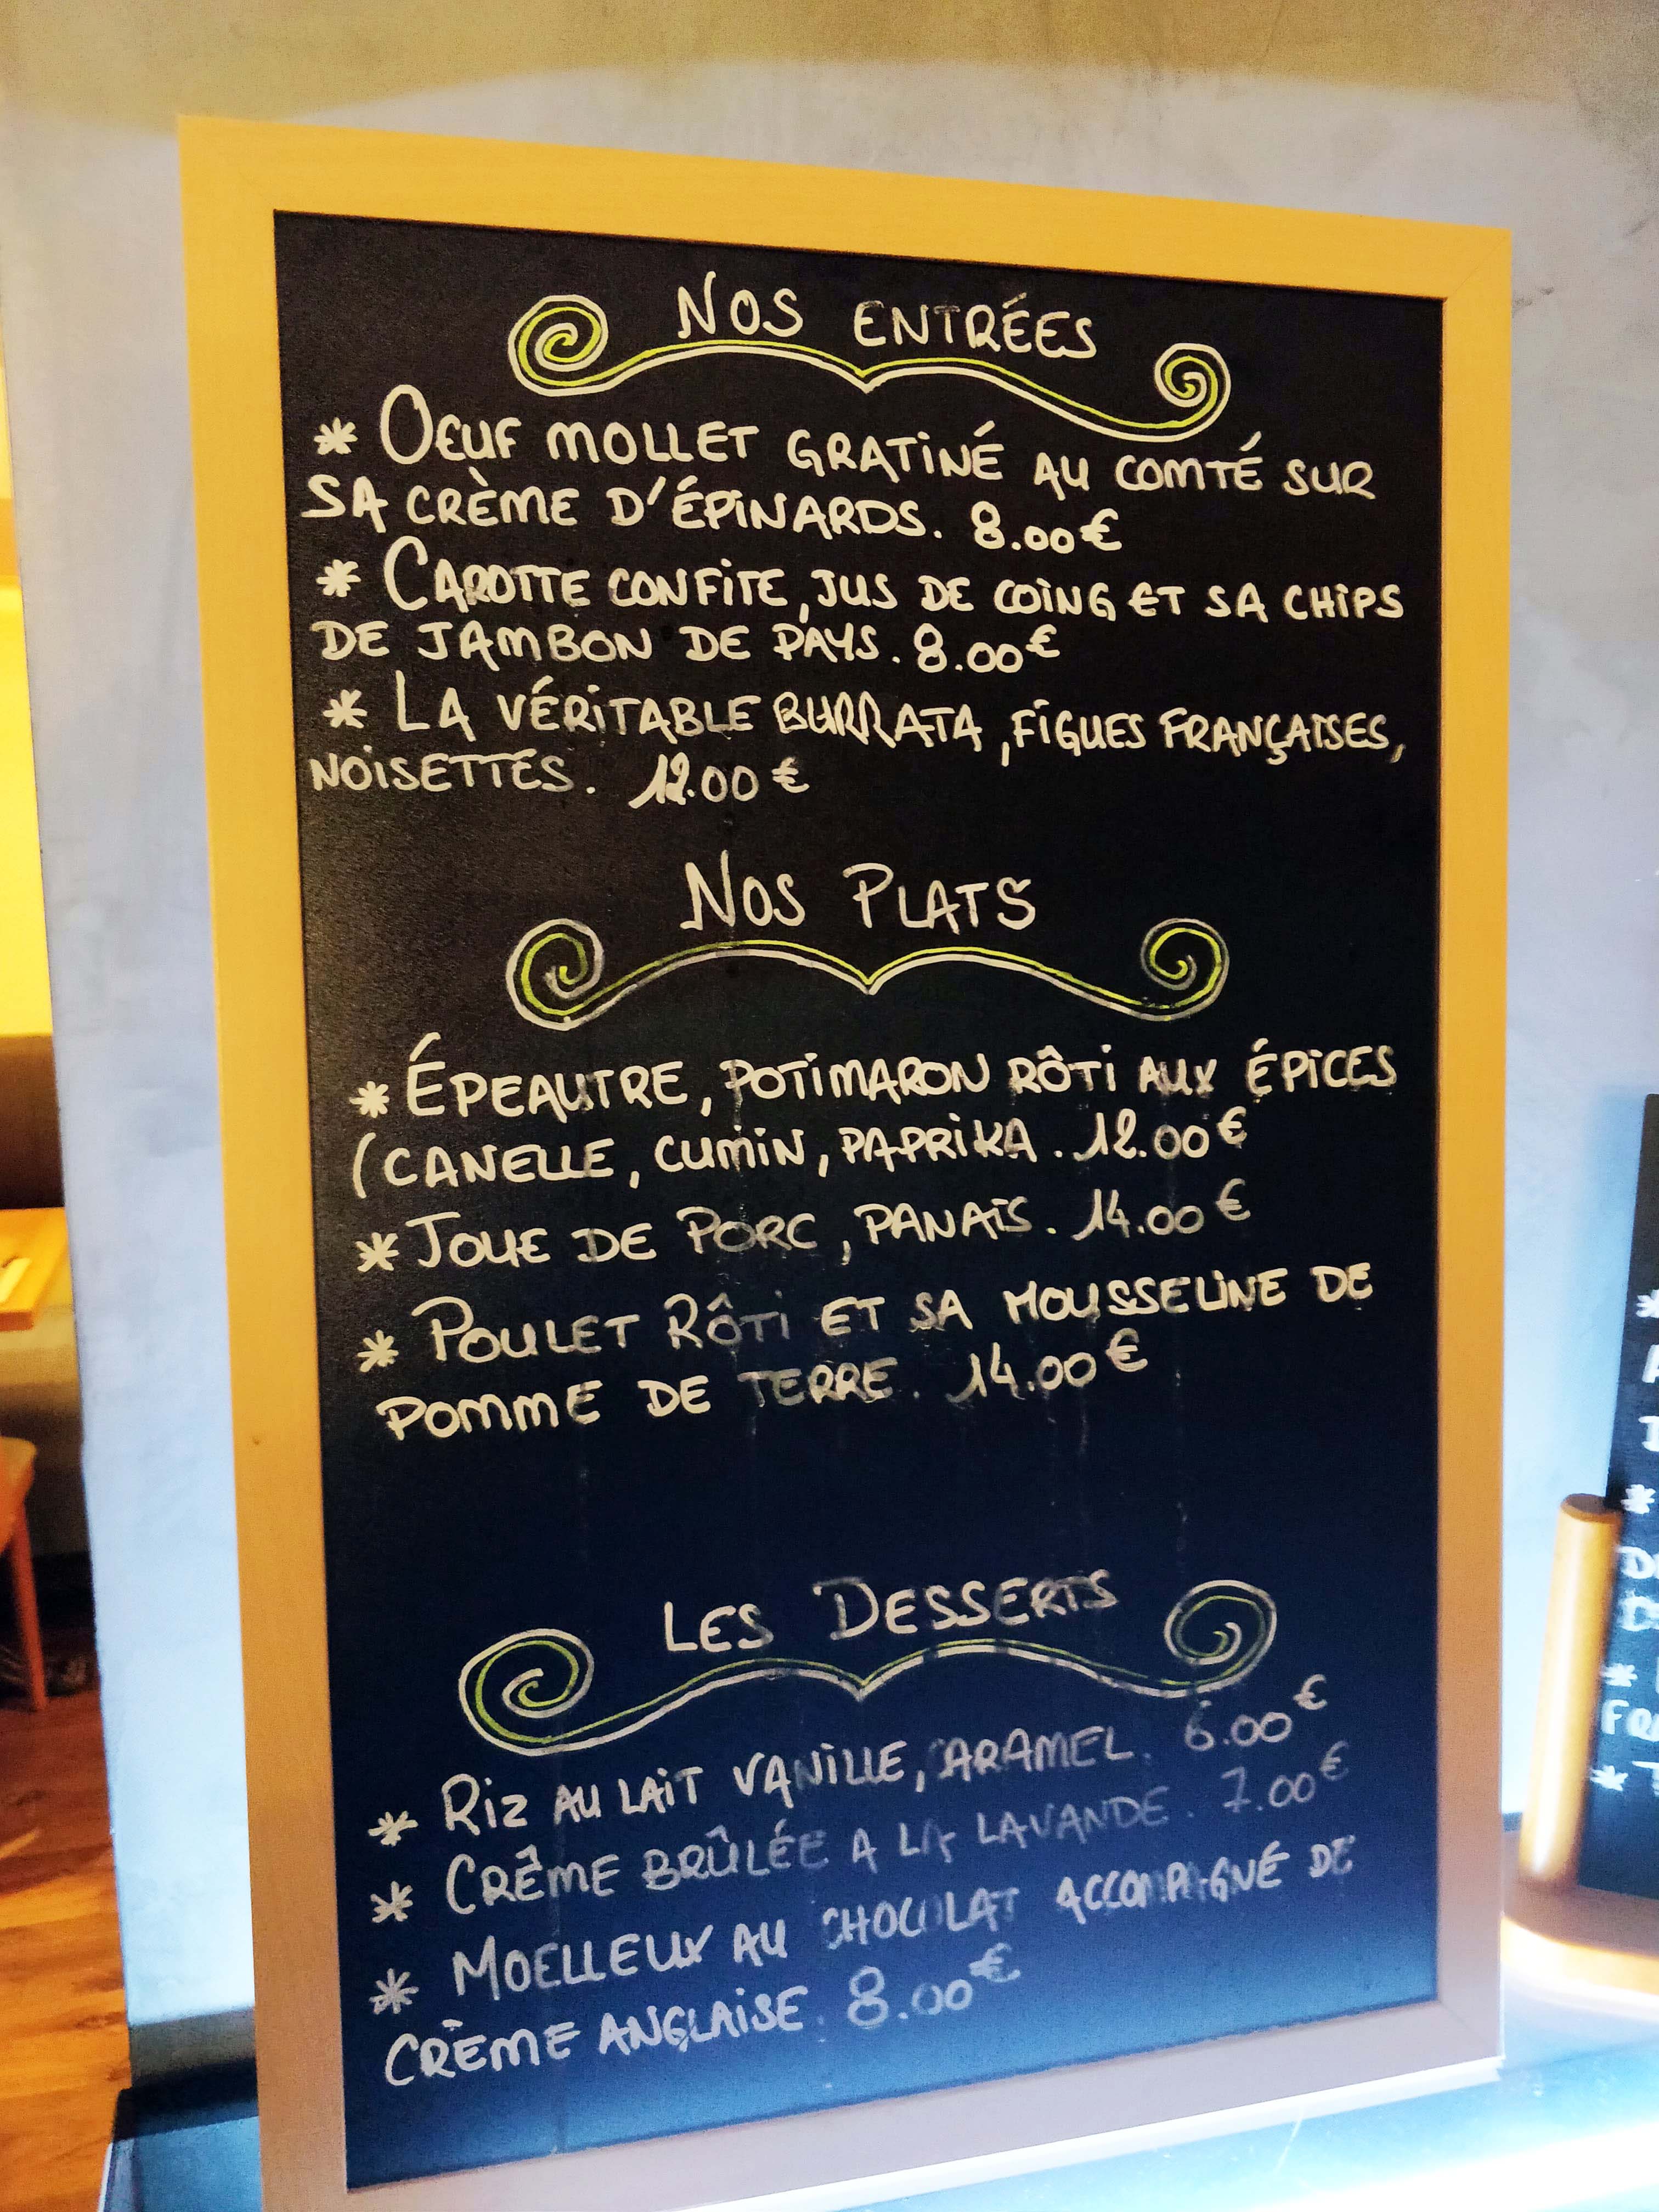 NOS ENTRÉES
* OEUF MOLLET GRATINÉ AU COMTÉ SUR
SA CRÈME D'ÉPINARDS. 8.00€
* CAROTTE CONFITE, JUS DE COING ET SA CHIPS
DE JAMBON DE PAYS. 8.00€
* LA VÉRITABLE BURRATA, FIGUES FRANÇAISES,
NOISETTES. 12.00€
NOS PLATS
* ÉPEAUTRE, POTIMARON RÔTI AUX ÉPICES
(CANELLE, CUMIN, PAPRIKA. 12.00€
* JOUE DE PORC, PANAIS. 14.00€
* POULET RÔTI ET SA MOUSSELINE DE
POMME DE TERRE. 14.00€
LES DESSERTS
* RIZ AU LAIT VANILLE, CARAMEL. 6.00€
* CRÊME BRÛLÉE A LA LAVANDE. 7.00€
* MOELLEUX AU CHOCOLAT ACCOMPAGNÉ DE
CRÈME ANGLAISE. 8.00€